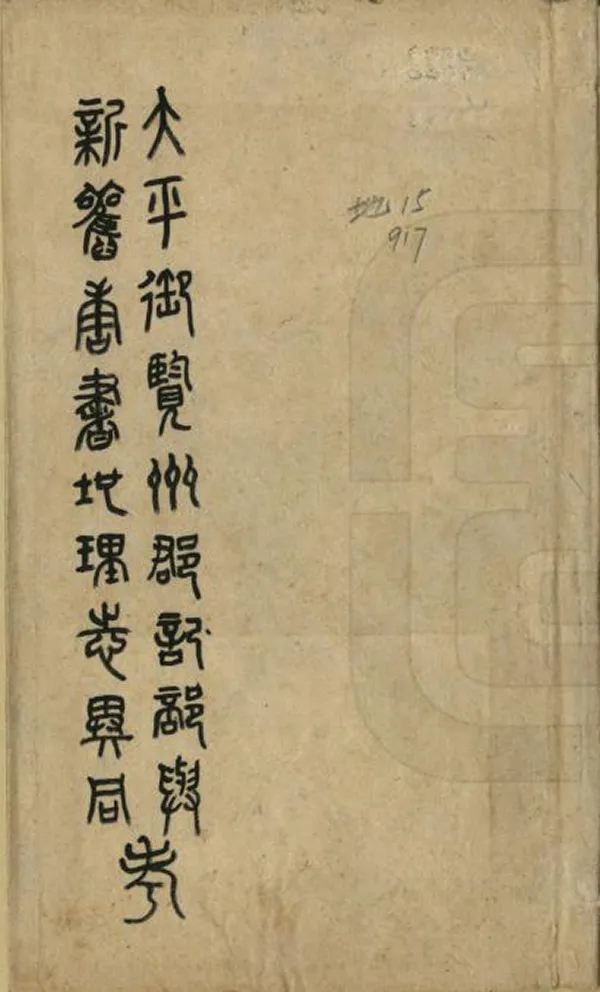 大平御覽州郡部與
新舊唐書地理志異同
考
地15
917